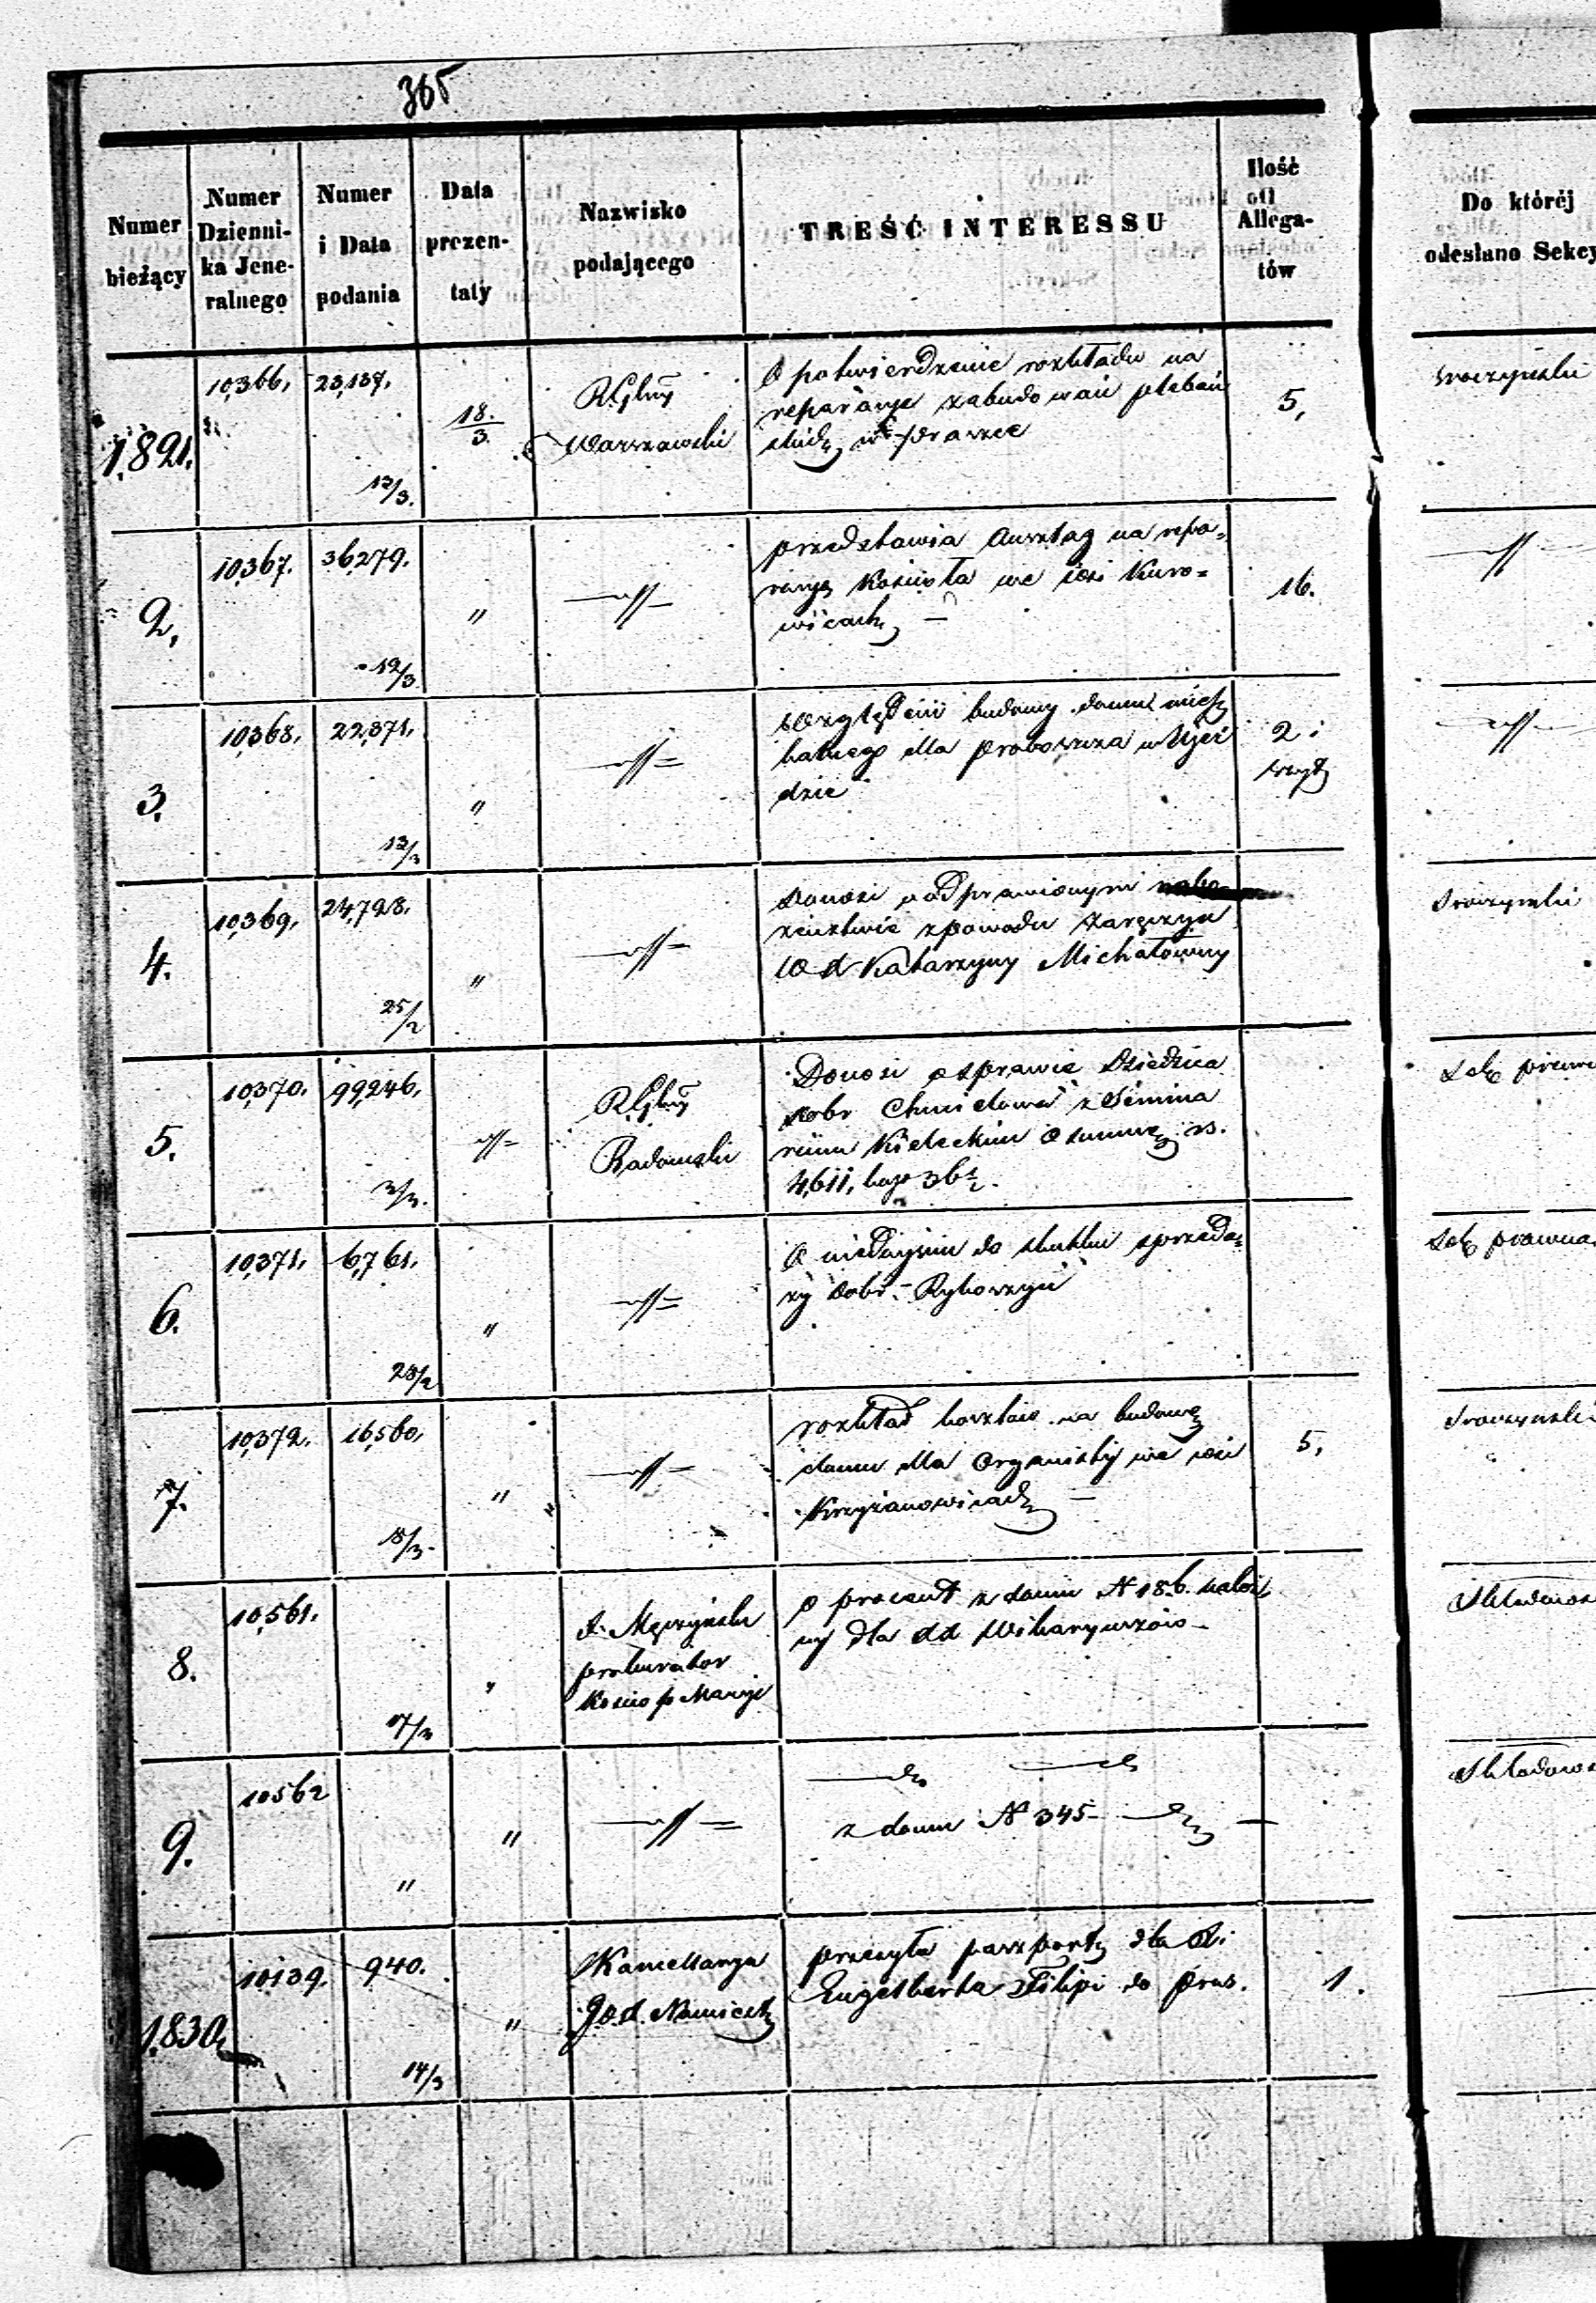 365
Numer bieżący
Numer Dzienni-
ka Jene-
ralnego
Numer
i Data
podania
Data
prezen-
taty
Nazwisko
podającego
TREŚĆ INTERESSU
Ilość
Allega-
tów
Do któréj
odesłano Sekcy
1,821.
10,366.
23,137.
12/3.
18./3.
R. Gbny
Warszawski
O potwierdzenie rozkładu na
reparacye zabudowań plebań
skich w
5,
2,
10,367.
36,279.
12/3
"
przedstawia anszlag na repa=
racyę Kościoła we wsi Kuro=
wicach
16.
3.
10,368.
22,371.
12/3
"
względem budowy domu miesz
kalnego dla proboszcza w Ujez
dzie
2 i
4.
10,369.
24,798.
25/2
"
Donosi o odprawionym nabo
żeństwie z powodu zaręczyn
W X Katarzyny Michałówny
5.
10,370.
99,246.
3/3.
R. Gbny
Radomski
Donosi o sprawie Dziedzica
dobr Chmielowa z Semina
rium Kieleckim o summę rs.
4,611, kop 36½.
Sek prawn
6.
10,371.
6,761.
28/2
"
O niedojściu do skutku sprzeda=
ży Dobr Rykoszyn
Sek prawna
7.
10,372.
16,560.
18/3.
"
rozkład kosztów na budowę
domu dla Organisty we wsi
Krzyżanowicach
5,
8.
10,561.
17/3
"
X. Męczyński
prokurator
Kościo p Maryi
o procent z domu N 186. należ
ny dla XX Wikaryuszów
9.
10562
"
"
z domu N 345
1,830.
10139.
940.
14/3
"
Kancellarya
J. O. X. Namiestn
przesyła paszport dla X.
Engelberta Filipi do Prus.
1.